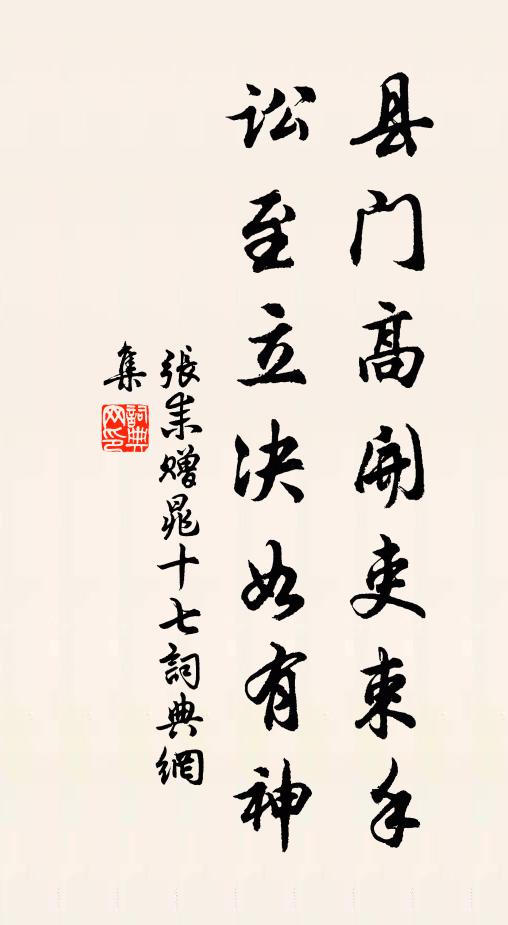 县门高开吏束手
讼至立决如有神
張耒赠晁十七詞典網
集
詞典网印